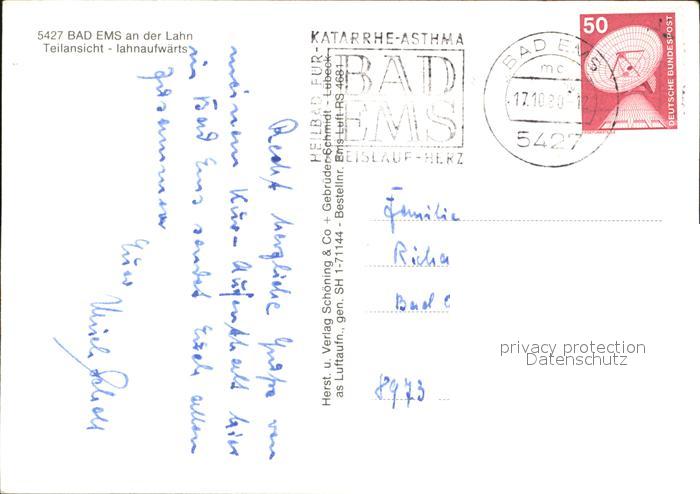 5427 BAD EMS an der Lahn
Teilansicht - lahnaufwärts
Recht herzliche Grüße von
meinem Kur-Aufenthalt hier
in Bad Ems sendet Euch allen
zusammen
Euer
Herst. u. Verlag Schöning & Co + Gebrüder Schmidt - Lübeck
as Luftaufn., gen. SH 1-71144 - Bestellnr. Ems Luft RS 4681
HEILBAD FÜR-
KATARRHE-ASTHMA
BAD
EMS
KREISLAUF-HERZ
BAD EMS
mc
17.10.80-12
5427
50
DEUTSCHE BUNDESPOST
Familie
Richa
Bad
8973
privacy protection
Datenschutz